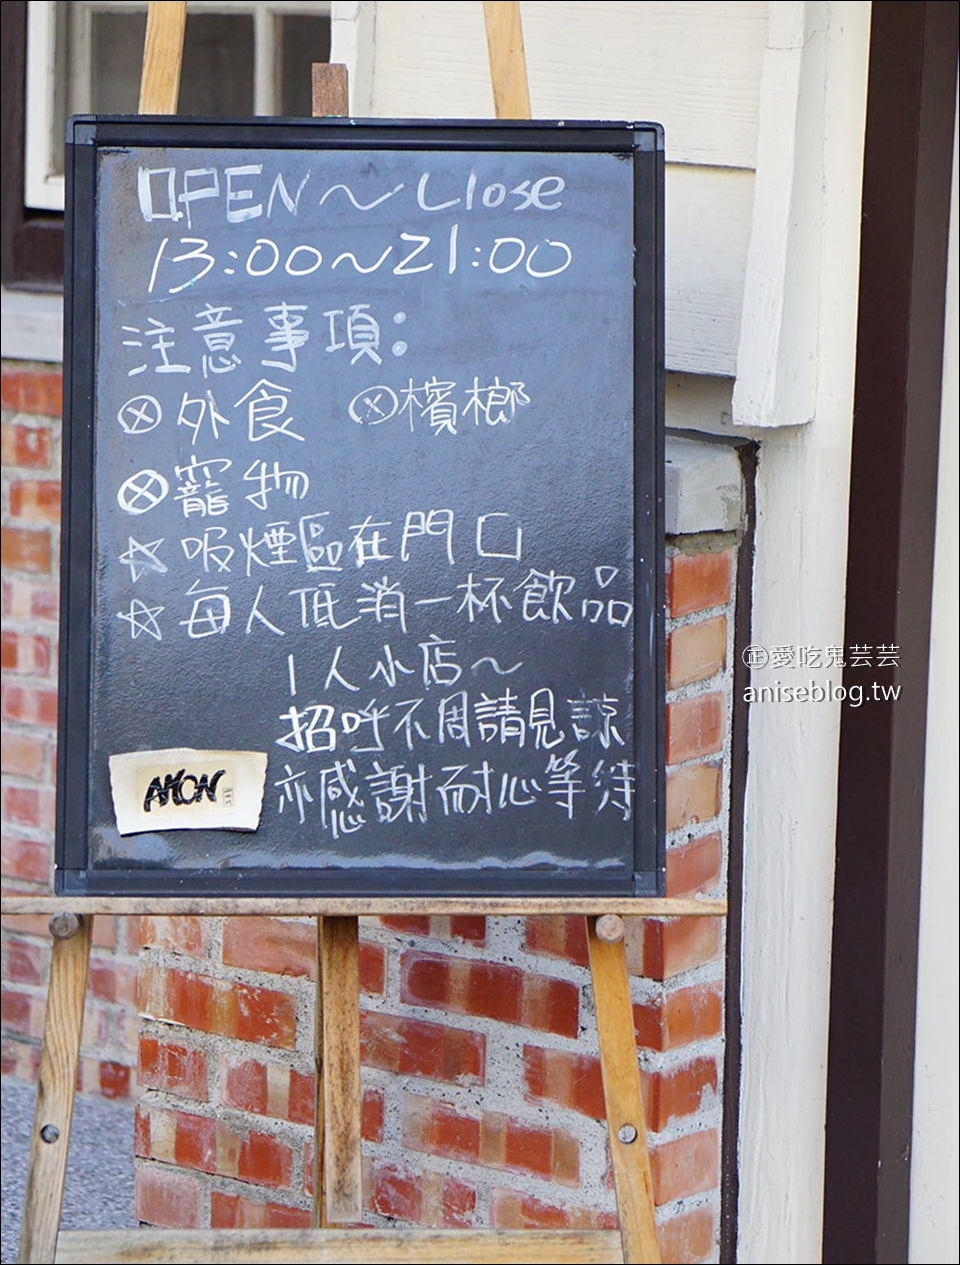 OPEN～Close
13:00～21:00
注意事項：
ⓧ外食 ⓧ檳榔
ⓧ寵物
☆吸煙區在門口
☆每人低消一杯飲品
1人小店～
招呼不周請見諒
亦感謝耐心等待
AKON
愛吃鬼芸芸
aniseblog.tw